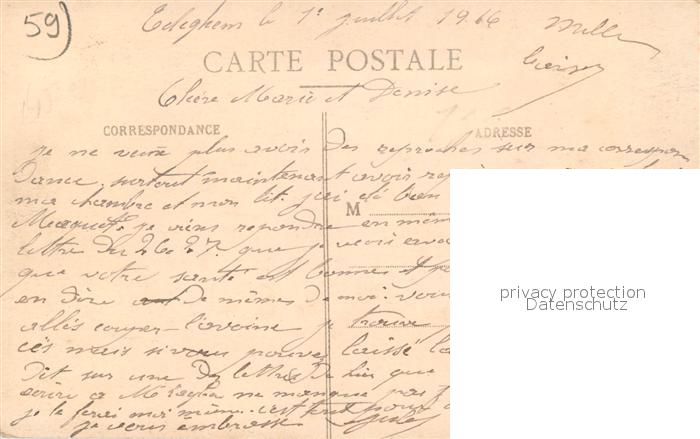 59)
le 1er juillet 1916
Mille
CARTE POSTALE
baisers
Chère Marie et Denise
CORRESPONDANCE
ADRESSE
je ne veux plus avoir des reproches sur ma correspon
dance. surtout maintenant avoir
ma chambre et mon lit. j'ai
M
je viens repondre en mêm
lettre du 26 et 27. que je vois
que votre santé est bonnes et
en dire de mêmes de moi. vous
allés couper l'avoine je trouve
mais si vous pouvez laissé
dit sur une des lettres de hier que
écrire a ne manque pas
je le ferai moi même. c'est tout pour
je vous embrasse Jules
privacy protection
Datenschutz